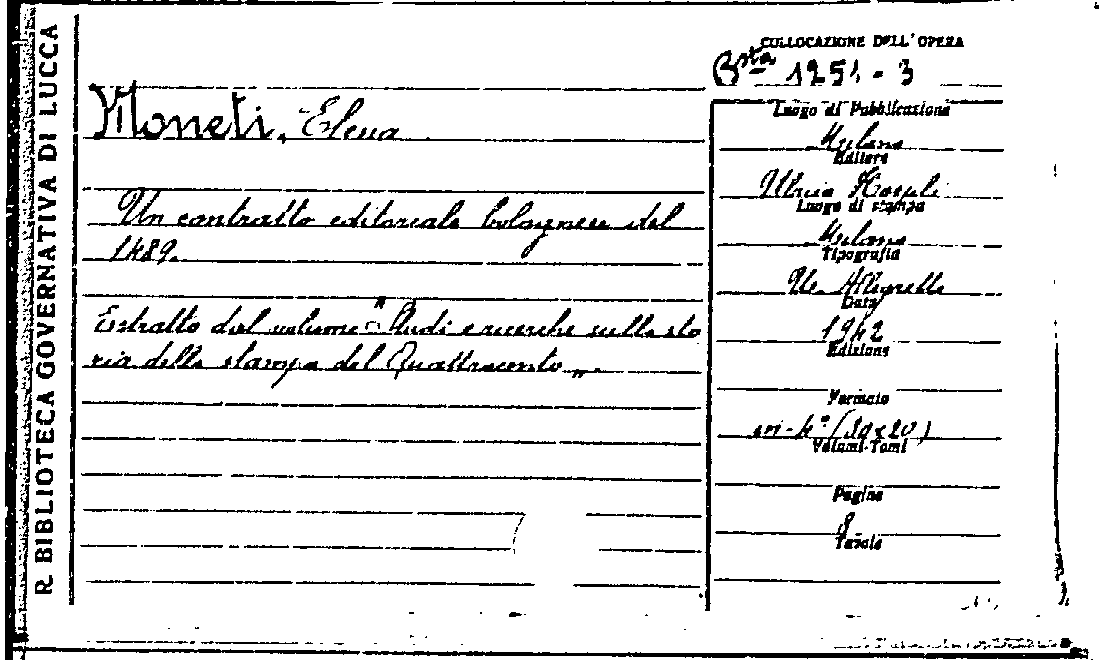 R. BIBLIOTECA GOVERNATIVA DI LUCCA
COLLOCAZIONE DELL'OPERA
Bsta 1251 - 3
Moneti, Elena
Un contratto editoriale bolognese del
1489.
Estratto dal volume "Studi e ricerche sulla sto
ria della stampa del Quattrocento".
Luogo di Pubblicazione
Milano
Editore
Ulrico Hoepli
Luogo di stampa
Milano
Tipografia
U. Allegretti
Data
1942
Edizione
Formato
in-4° (30x20)
Volumi-Tomi
Pagine
8
Tavole